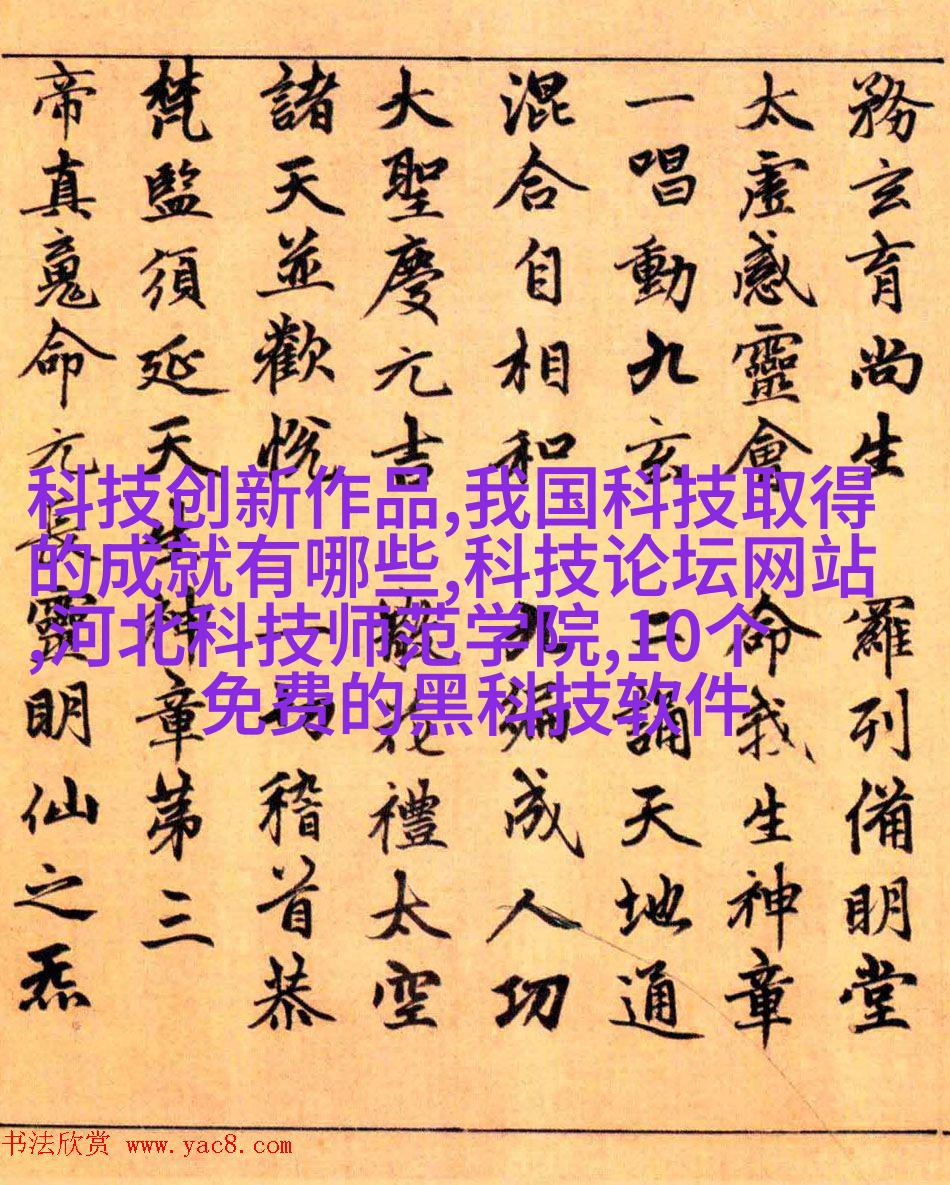 務玄育尚生 羅列備明堂
太虛感靈會 命我生神章
一唱動九玄 二誦天地通
混合自相和 九遍成人功
大聖慶元吉 散花禮太空
諸天並歡悅 稽首恭
梵監須延天生神章第三
帝真䰟命元長靈明仙之炁
科技创新作品,我国科技取得
的成就有哪些,科技论坛网站
,河北科技师范学院,10个
免费的黑科技软件
书法欣赏 www.yac8.com